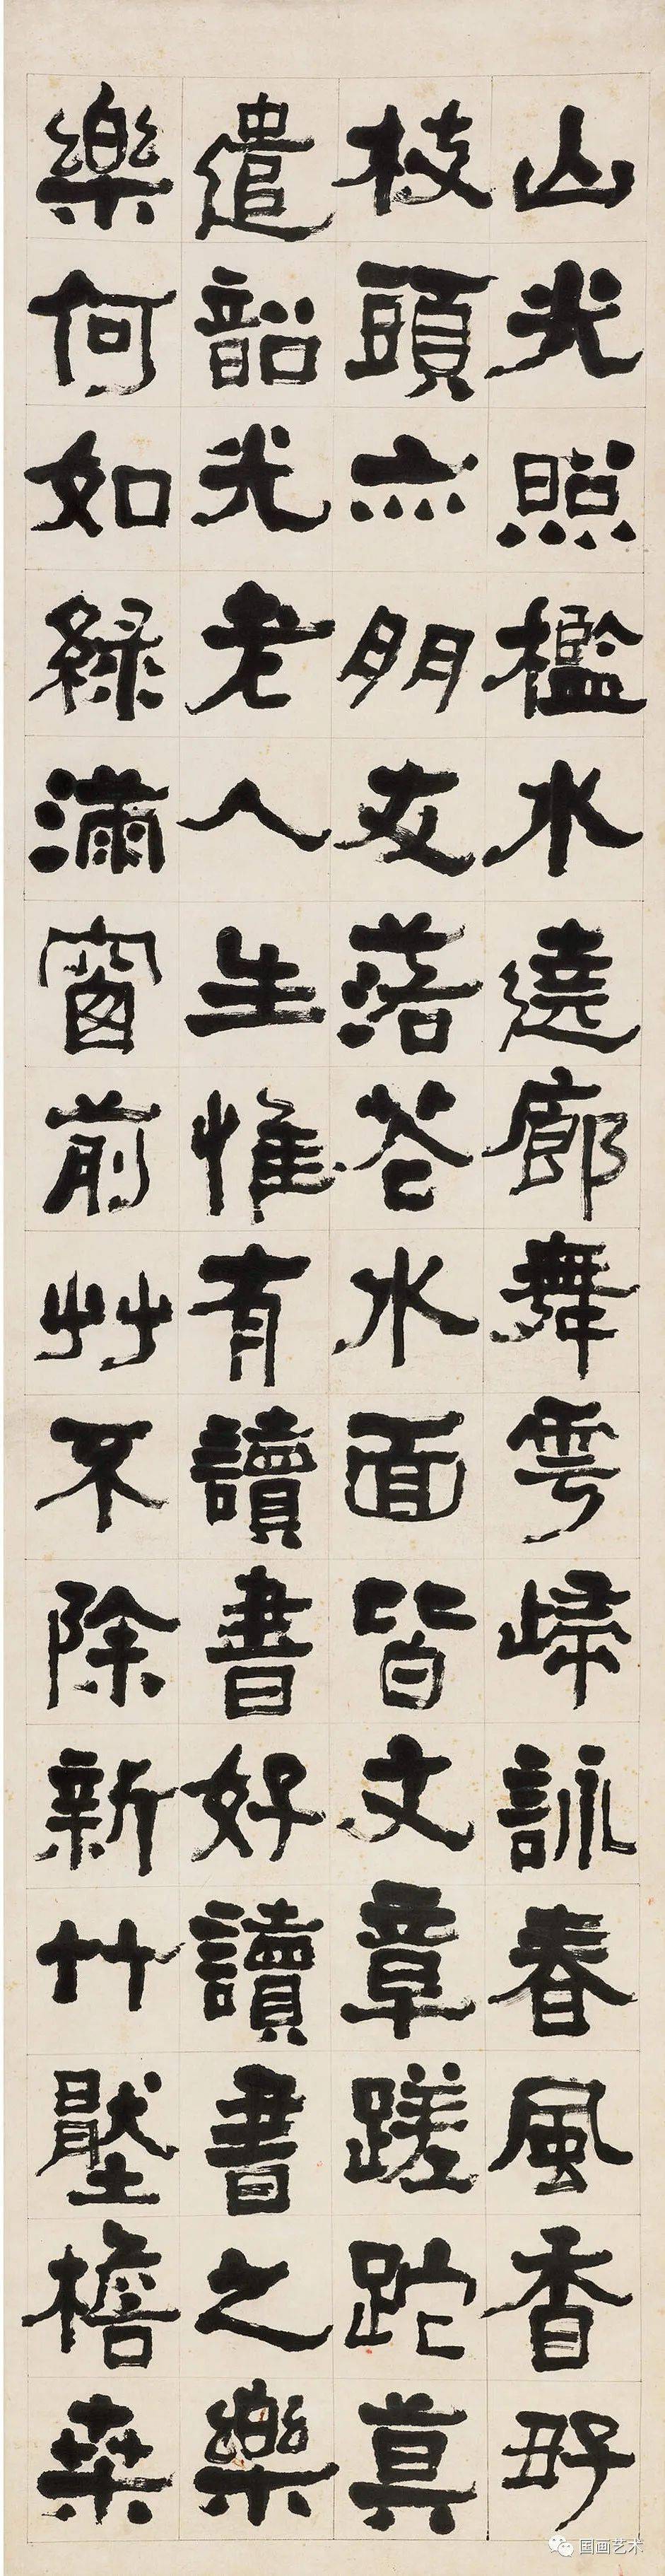 山光照檻水遶廊舞雩歸詠春風香好
枝頭亦朋友落花水面皆文章蹉跎莫
遣韶光老人生惟有讀書好讀書之樂
樂何如綠滿窗前艸不除新竹壓檐桑
国画艺术